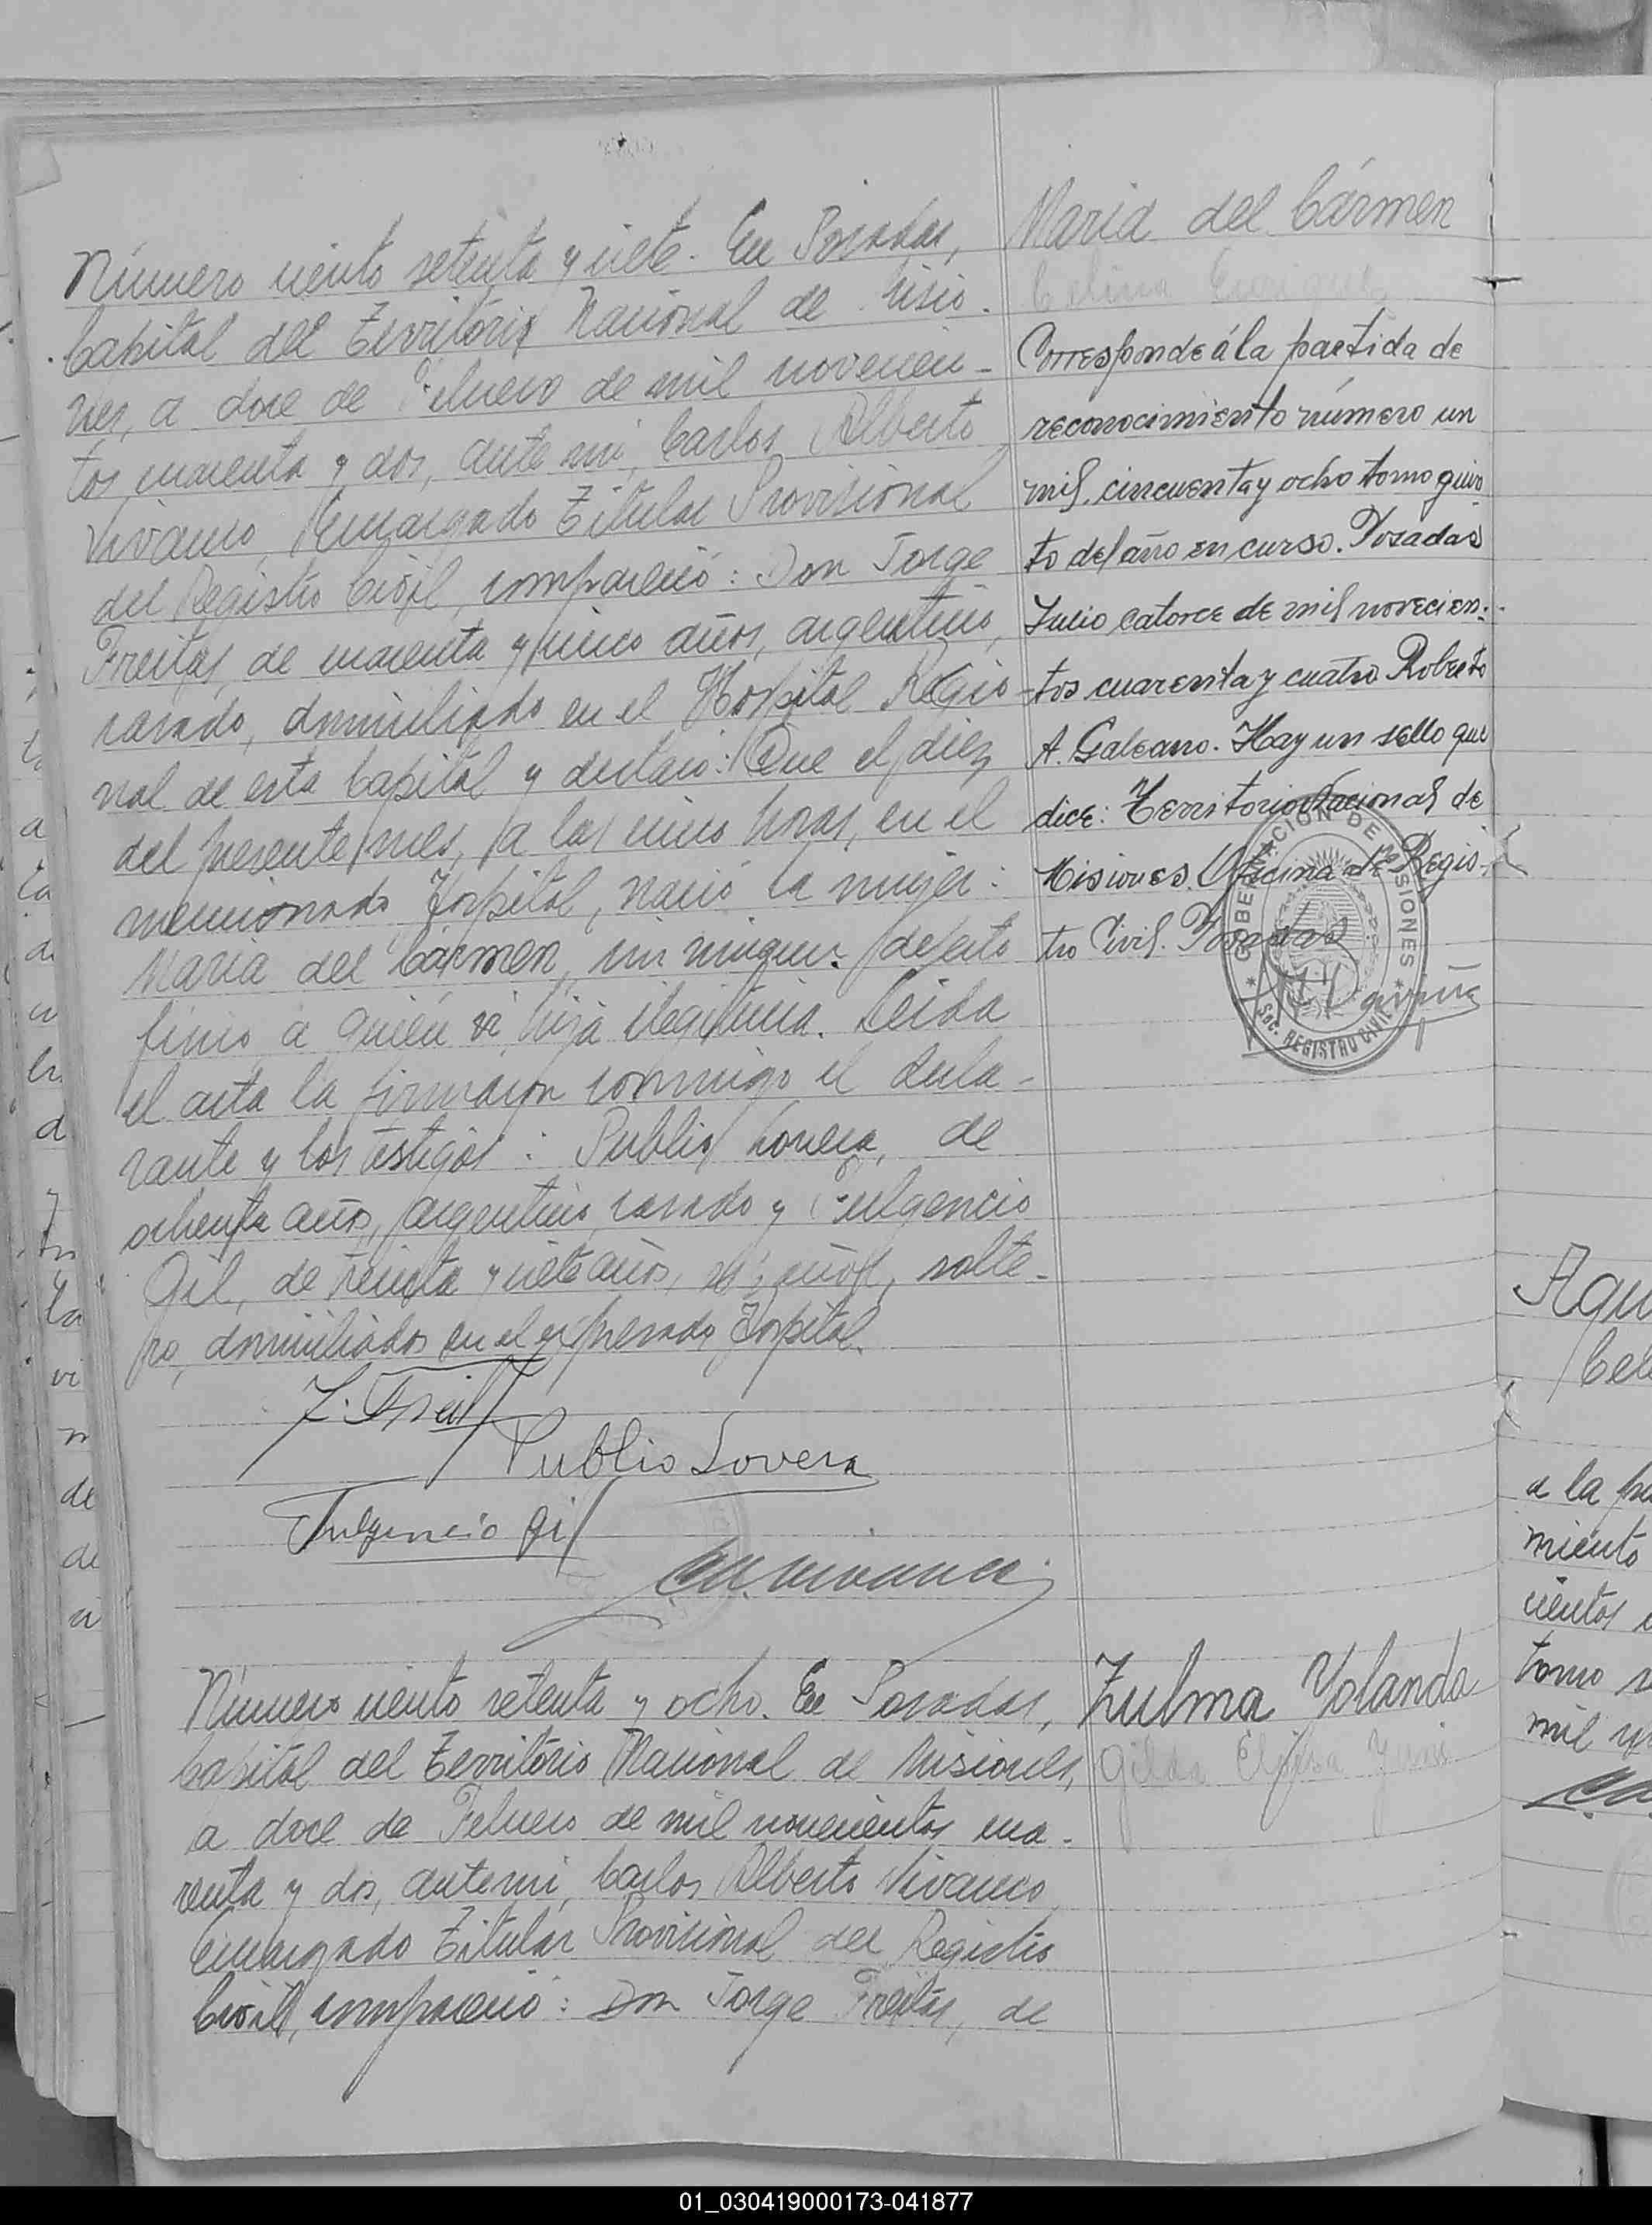 Número ciento setenta y siete. En Posadas,
Capital del Territorio Nacional de Misio-
nes, a doce de Febrero de mil novecien-
tos cuarenta y dos, ante mi, Carlos Alberto
Vivanco, Encargado Titular Provisional
del Registro Civil, compareció: Don Jorge
Freitas, de cuarenta y cinco años, argentino,
casado, domiciliado en el Hospital Regio-
nal de esta Capital y declaró: Que el diez
del presente mes, a las cinco horas, en el
mencionado Hospital, nació la mujer:
María del Cármen, sin ningun defecto
físico a quién vi, hija ilegitima. Leida
el acta la firmaron conmigo el decla-
rante y los testigos: Publio Lovera, de
ochenta años, argentino, casado y Fulgencio
Gil, de treinta y siete años, español, solte-
ro, domiciliados en el expresado Hospital.
J. Freitas
Publio Lovera
Fulgencio Gil
C.A. Vivanco
María del Cármen
Celina Enriquez
Corresponde á la partida de
reconocimiento número un
mil, cincuenta y ocho tomo quin
to del año en curso. Posadas
Julio catorce de mil novecien-
tos cuarenta y cuatro Roberto
A. Galeano. Hay un sello que
dice: Territorio Nacional de
Misiones. Oficina de Regis-
tro Civil. Posadas
GOBERNACIÓN DE MISIONES
Sec. REGISTRO CIVIL
Número ciento setenta y ocho. En Posadas,
Capital del Territorio Nacional de Misiones,
a doce de Febrero de mil novecientos cua-
renta y dos, ante mi, Carlos Alberto Vivanco,
Encargado Titular Provisional del Registro
Civil, compareció: Don Jorge Freitas, de
Zulma Yolanda
Gilda
a la
miento
cientos
tomo
mil
01_030419000173-041877